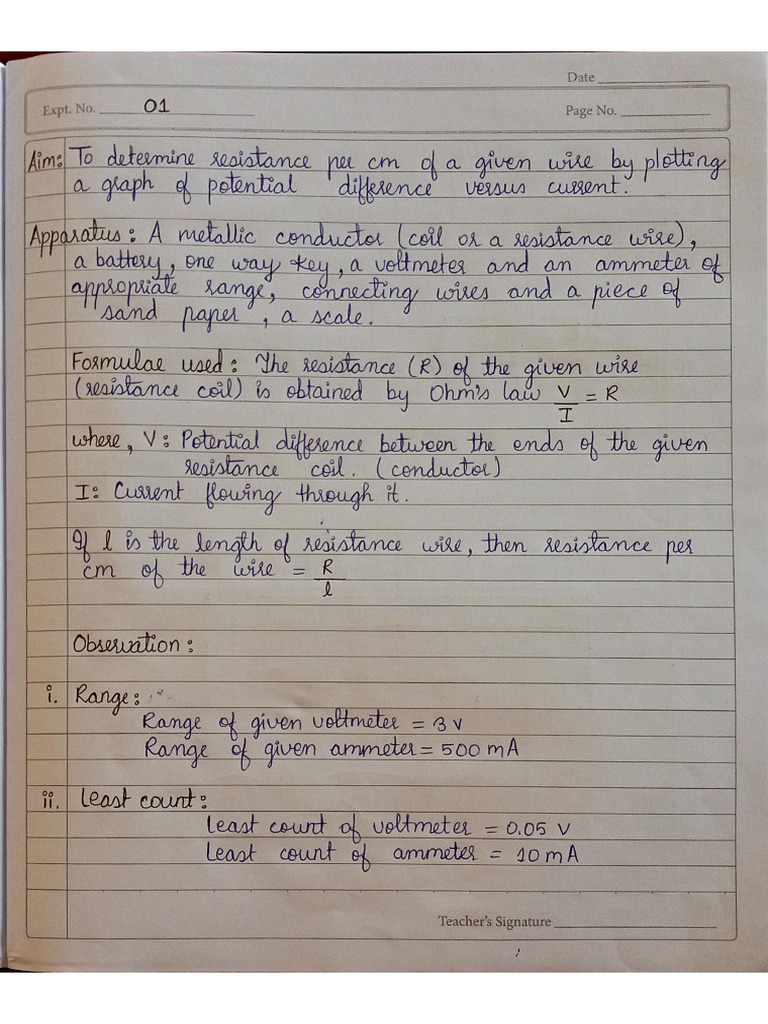 Date
Expt. No. 01
Page No.
Aim: To determine resistance per cm of a given wire by plotting
a graph of potential difference versus current.
Apparatus: A metallic conductor (coil or a resistance wire),
a battery, one way key, a voltmeter and an ammeter of
appropriate range, connecting wires and a piece of
sand paper, a scale.
Formulae used: The resistance (R) of the given wire
(resistance coil) is obtained by Ohm's law V/I = R
where, V: Potential difference between the ends of the given
resistance coil. (conductor)
I: Current flowing through it.
If l is the length of resistance wire, then resistance per
cm of the wire = R/l
Observation:
i. Range:
Range of given voltmeter = 3 v
Range of given ammeter = 500 mA
ii. Least count:
Least count of voltmeter = 0.05 V
Least count of ammeter = 10 mA
Teacher's Signature